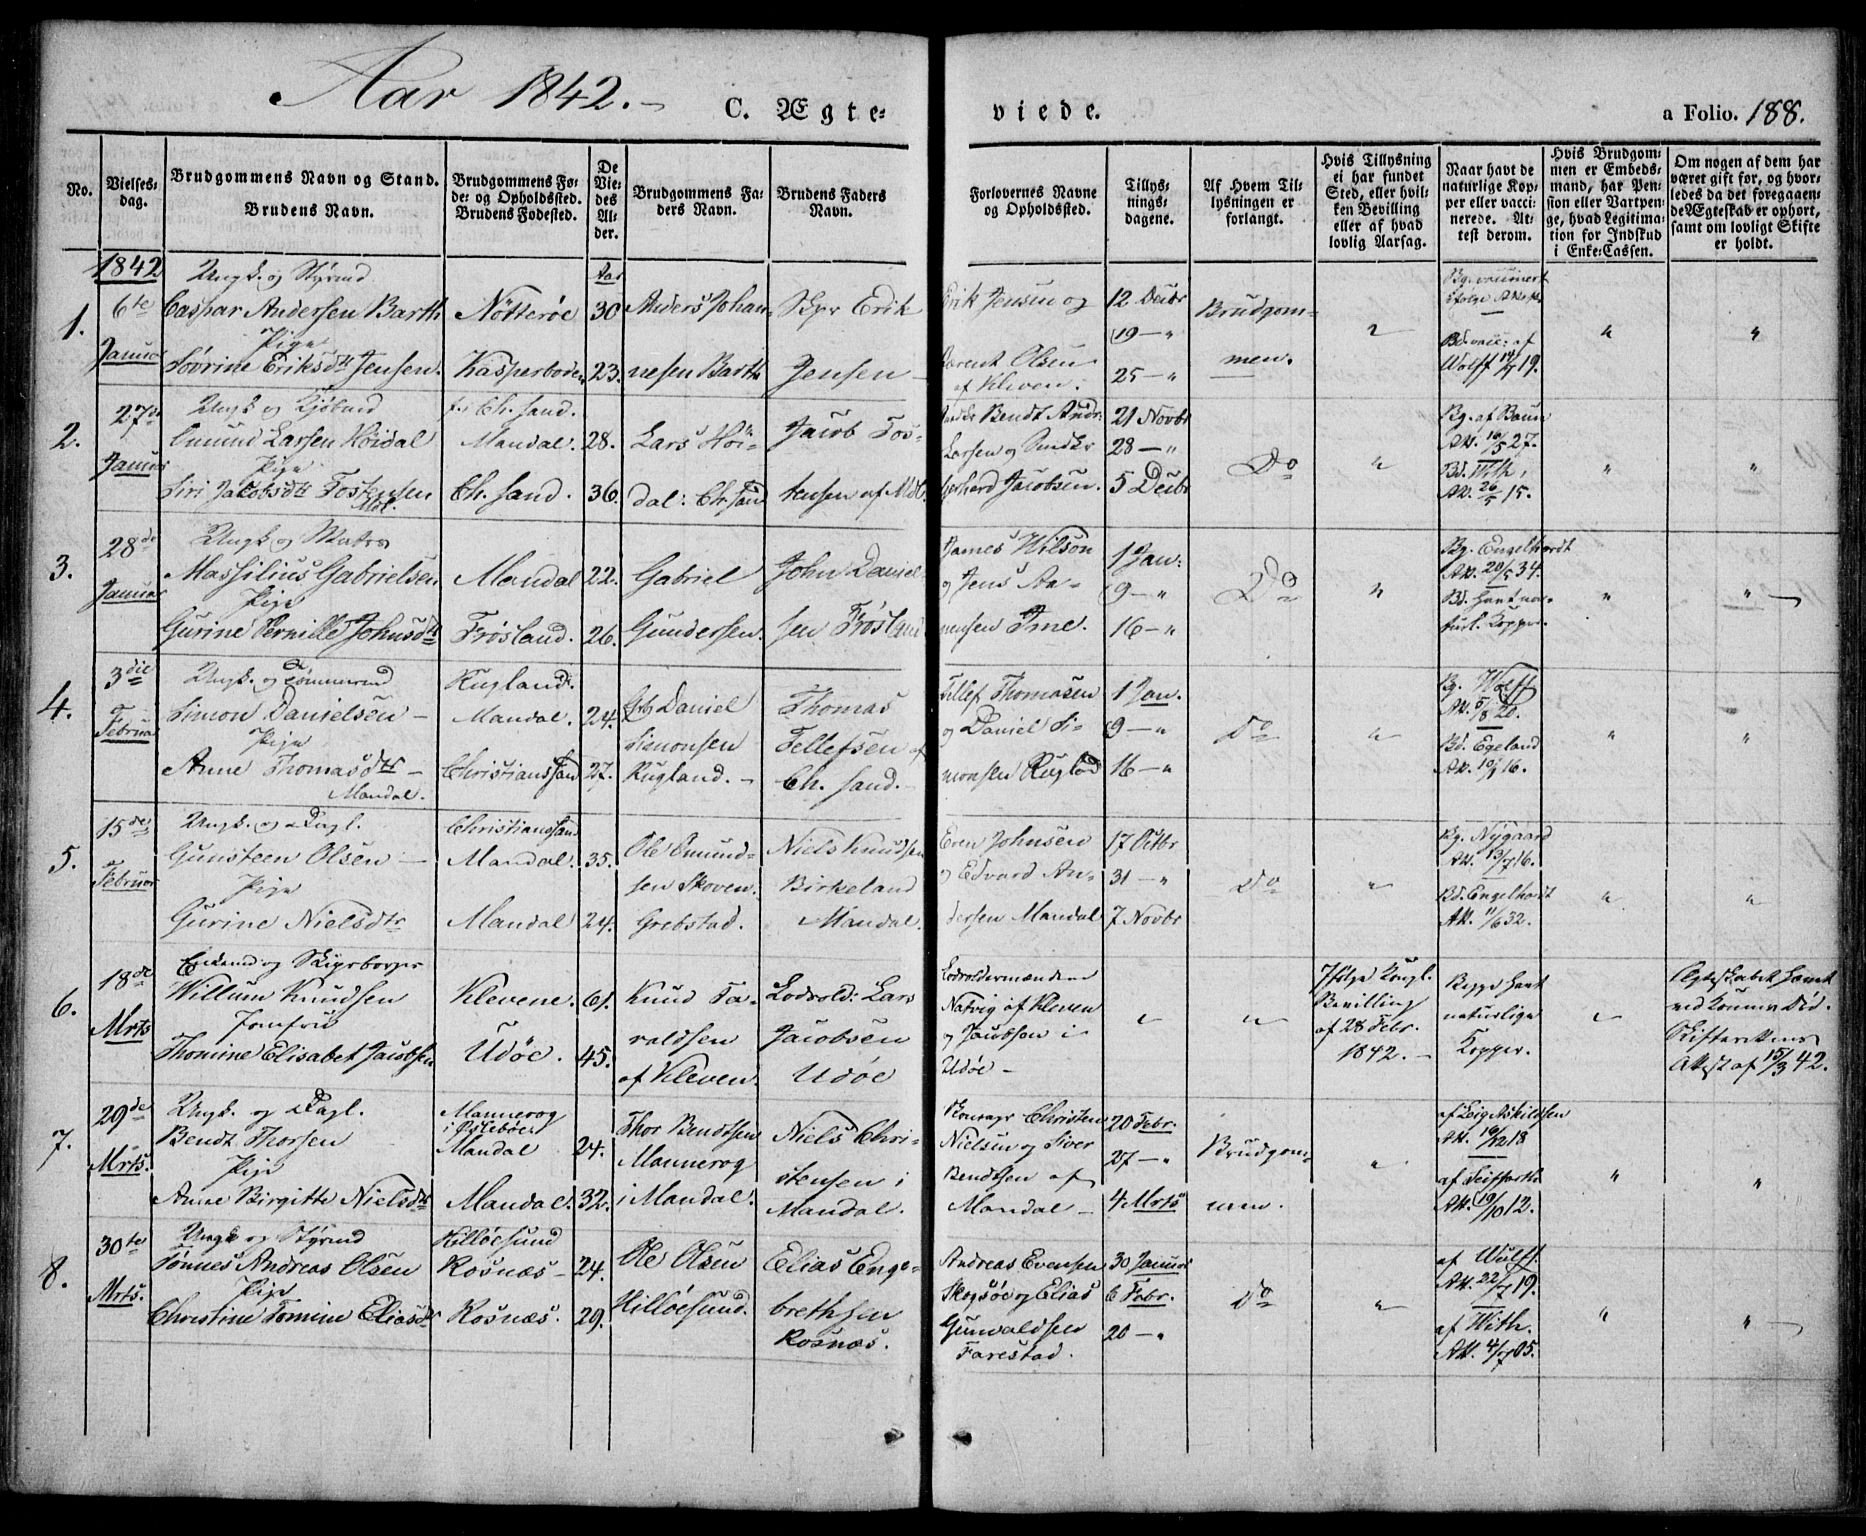 Aar 1842.
C. Ægte-
viede.
a Folio. 188.
No.
Vielses-
dag.
Brudgommens Navn og Stand.
Brudens Navn.
Brudgommens Fø-
de- og Opholdssted.
Brudens Fødested.
De
Vie-
des
Al-
der.
Brudgommens Fa-
ders Navn.
Brudens Faders
Navn.
Forlovernes Navne
og Opholdssted.
Tillys-
nings-
dagene.
Af Hvem Til-
lysningen er
forlangt.
Hvis Tillysning
ei har fundet
Sted, eller hvil-
ken Bevilling
eller af hvad
lovlig Aarsag.
Naar havt de
naturlige Kop-
per eller vacci-
nerede. At-
test derom.
Hvis Brudgom-
men er Embeds-
mand, har Pen-
sion eller Vartpen-
ge, hvad Legitima-
tion for Indskud
i Enke-Cassen.
Om nogen af dem har
været gift for, og hvor-
ledes da det foregaaen-
de Ægteskab er ophørt,
samt om lovligt Skifte
er holdt.
1842
1.
6te
Januar
Ungk. og Styrmd
Caspar Andersen Barth
Pige
Sövrine Eriksdtr Jensen.
Nötteröe
Kasperboden
Aar
30
23.
Anders Johan-
nesen Barth
Skpr Erik
Jensen
Erik Jensen og
Berent Olsen
af Kleven.
12 Decbr
19 — "
25 — "
Brudgom-
men.
"
Bg. vaccineret
Bd. vacc. af
Wolff 14/7 19.
"
"
2.
27de
Januar
Ungk. og
Omund Larsen Höidal
Pige
Siri Jakobsdtr Tostensen
Mdl.
f. i Ch. sand.
Mandal.
Ch. sand.
28.
36.
Lars Höi-
dal: Ch. sand
Jacob Tos-
tensen af Mdl.
Bendt Andr:
Larsen og
Gerhard Jacobsen.
21 Novbr
28 — "
5 Decbr
Do
"
Bg. af Baun
Att. 10/5 27.
Bd. With,
Att. 26/5 15.
"
"
3.
28de
Januar
Ungk. og Matros
Massilius Gabrielsen
Pige
Gurine Pernille Johnsdtr
Mandal
Frösland.
22.
26.
Gabriel
Gundersen.
John Daniel-
sen Frösland
James Wilson
og Jens Aa-
nensen Ime.
1 Jan:
9 — "
16 — "
Do
"
Bg. Engelhardt
Att. 20/5 34.
Bd. havt na-
turl. Kopper.
"
"
4.
3die
Februar
Ungk. og Tömmermd
Simon Danielsen
Pige
Anne Thomasdtr
Mandal.
Rugland.
Mandal.
Christianssand
24.
27.
Daniel
Simonsen
Rugland.
Thomas
Tellefsen af
Ch. sand.
Tellef Thomasen
og Daniel Si-
monsen Rugld
1 Jan.
9 — "
16 — "
Do
"
Bg. Wolff
Att. 5/8 20.
Bd. Egeland
Att. 10/9 16.
"
"
5.
15de
Februar
Ungk. og Dagl.
Gunsteen Olsen
Pige
Gurine Nielsdtr
Christianssand
Mandal.
Mandal
35.
24.
Ole Omund-
sen Skoven.
Grebstad.
Niels Knudsen
Birkeland
Mandal.
Even Johnsen
og Edvard An-
dersen Mandal
17 Octbr
31 — "
7 Novbr
Do
"
Bg. Nygaard
Att. 13/7 16.
Bd. Engelhardt
Att. 11/6 32.
"
"
6.
18de
Mrts
Enkemd og Skipsborger
Willum Knudsen
Jomfru
Thomine Elisabet Jacobsen
Klevene.
Udöe.
61.
45.
Knud Ta-
raldsen
af Kleven.
Lodsold: Lars
Jacobsen
Udöe
Lodsoldermændene
Natvig af Kleven
og Jacobsen i
Udöe
"
"
Ifölge Kongl.
Bevilling
af 28 Febr.
1842.
Begge havt
naturlige
Kopper.
"
Ægteskabet hævet
ved Konens Död.
Skifterettens
Attest af 15/3 42.
7.
29de
Mrts.
Ungk. og Dagl.
Bendt Thorsen
Pige
Anne Birgitte Nielsdtr
Mannerog
i Öslebøe
Mandal
Mandal.
24.
32.
Thor Bendtsen
Mannerog
i Mandal.
Niels Chri-
stensen i
Mandal.
Christen
Nielsen og Siver
Bendtsen af
Mandal
20 Febr.
27 — "
4 Mrts
Brudgom-
men.
"
Att. 16/12 18
af Seiffarth
Att. 19/10 12.
"
"
8.
30te
Mrts.
Ungk. og Styrmd
Tönnes Andreas Olsen
Pige
Christine Tomine Eliasdtr
Hillöesund
Rosnæs
Rosnæs.
24.
29.
Ole Olsen
Hillöesund.
Elias Enge-
brethsen
Rosnæs.
Andreas Evensen
Skogsöe og Elias
Gunvaldsen
Farestad.
30 Januar
6 Febr.
20 — "
Do
"
af Wulff.
Att. 22/7 19.
af With.
Att. 4/7 05.
"
"